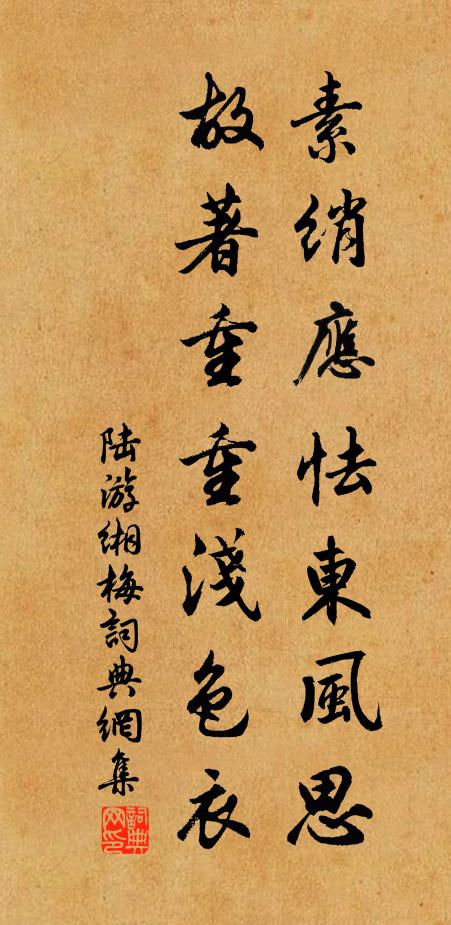 素綃應怯東風思
故著重重淺色衣
陆游缃梅詞典網集
詞典网印